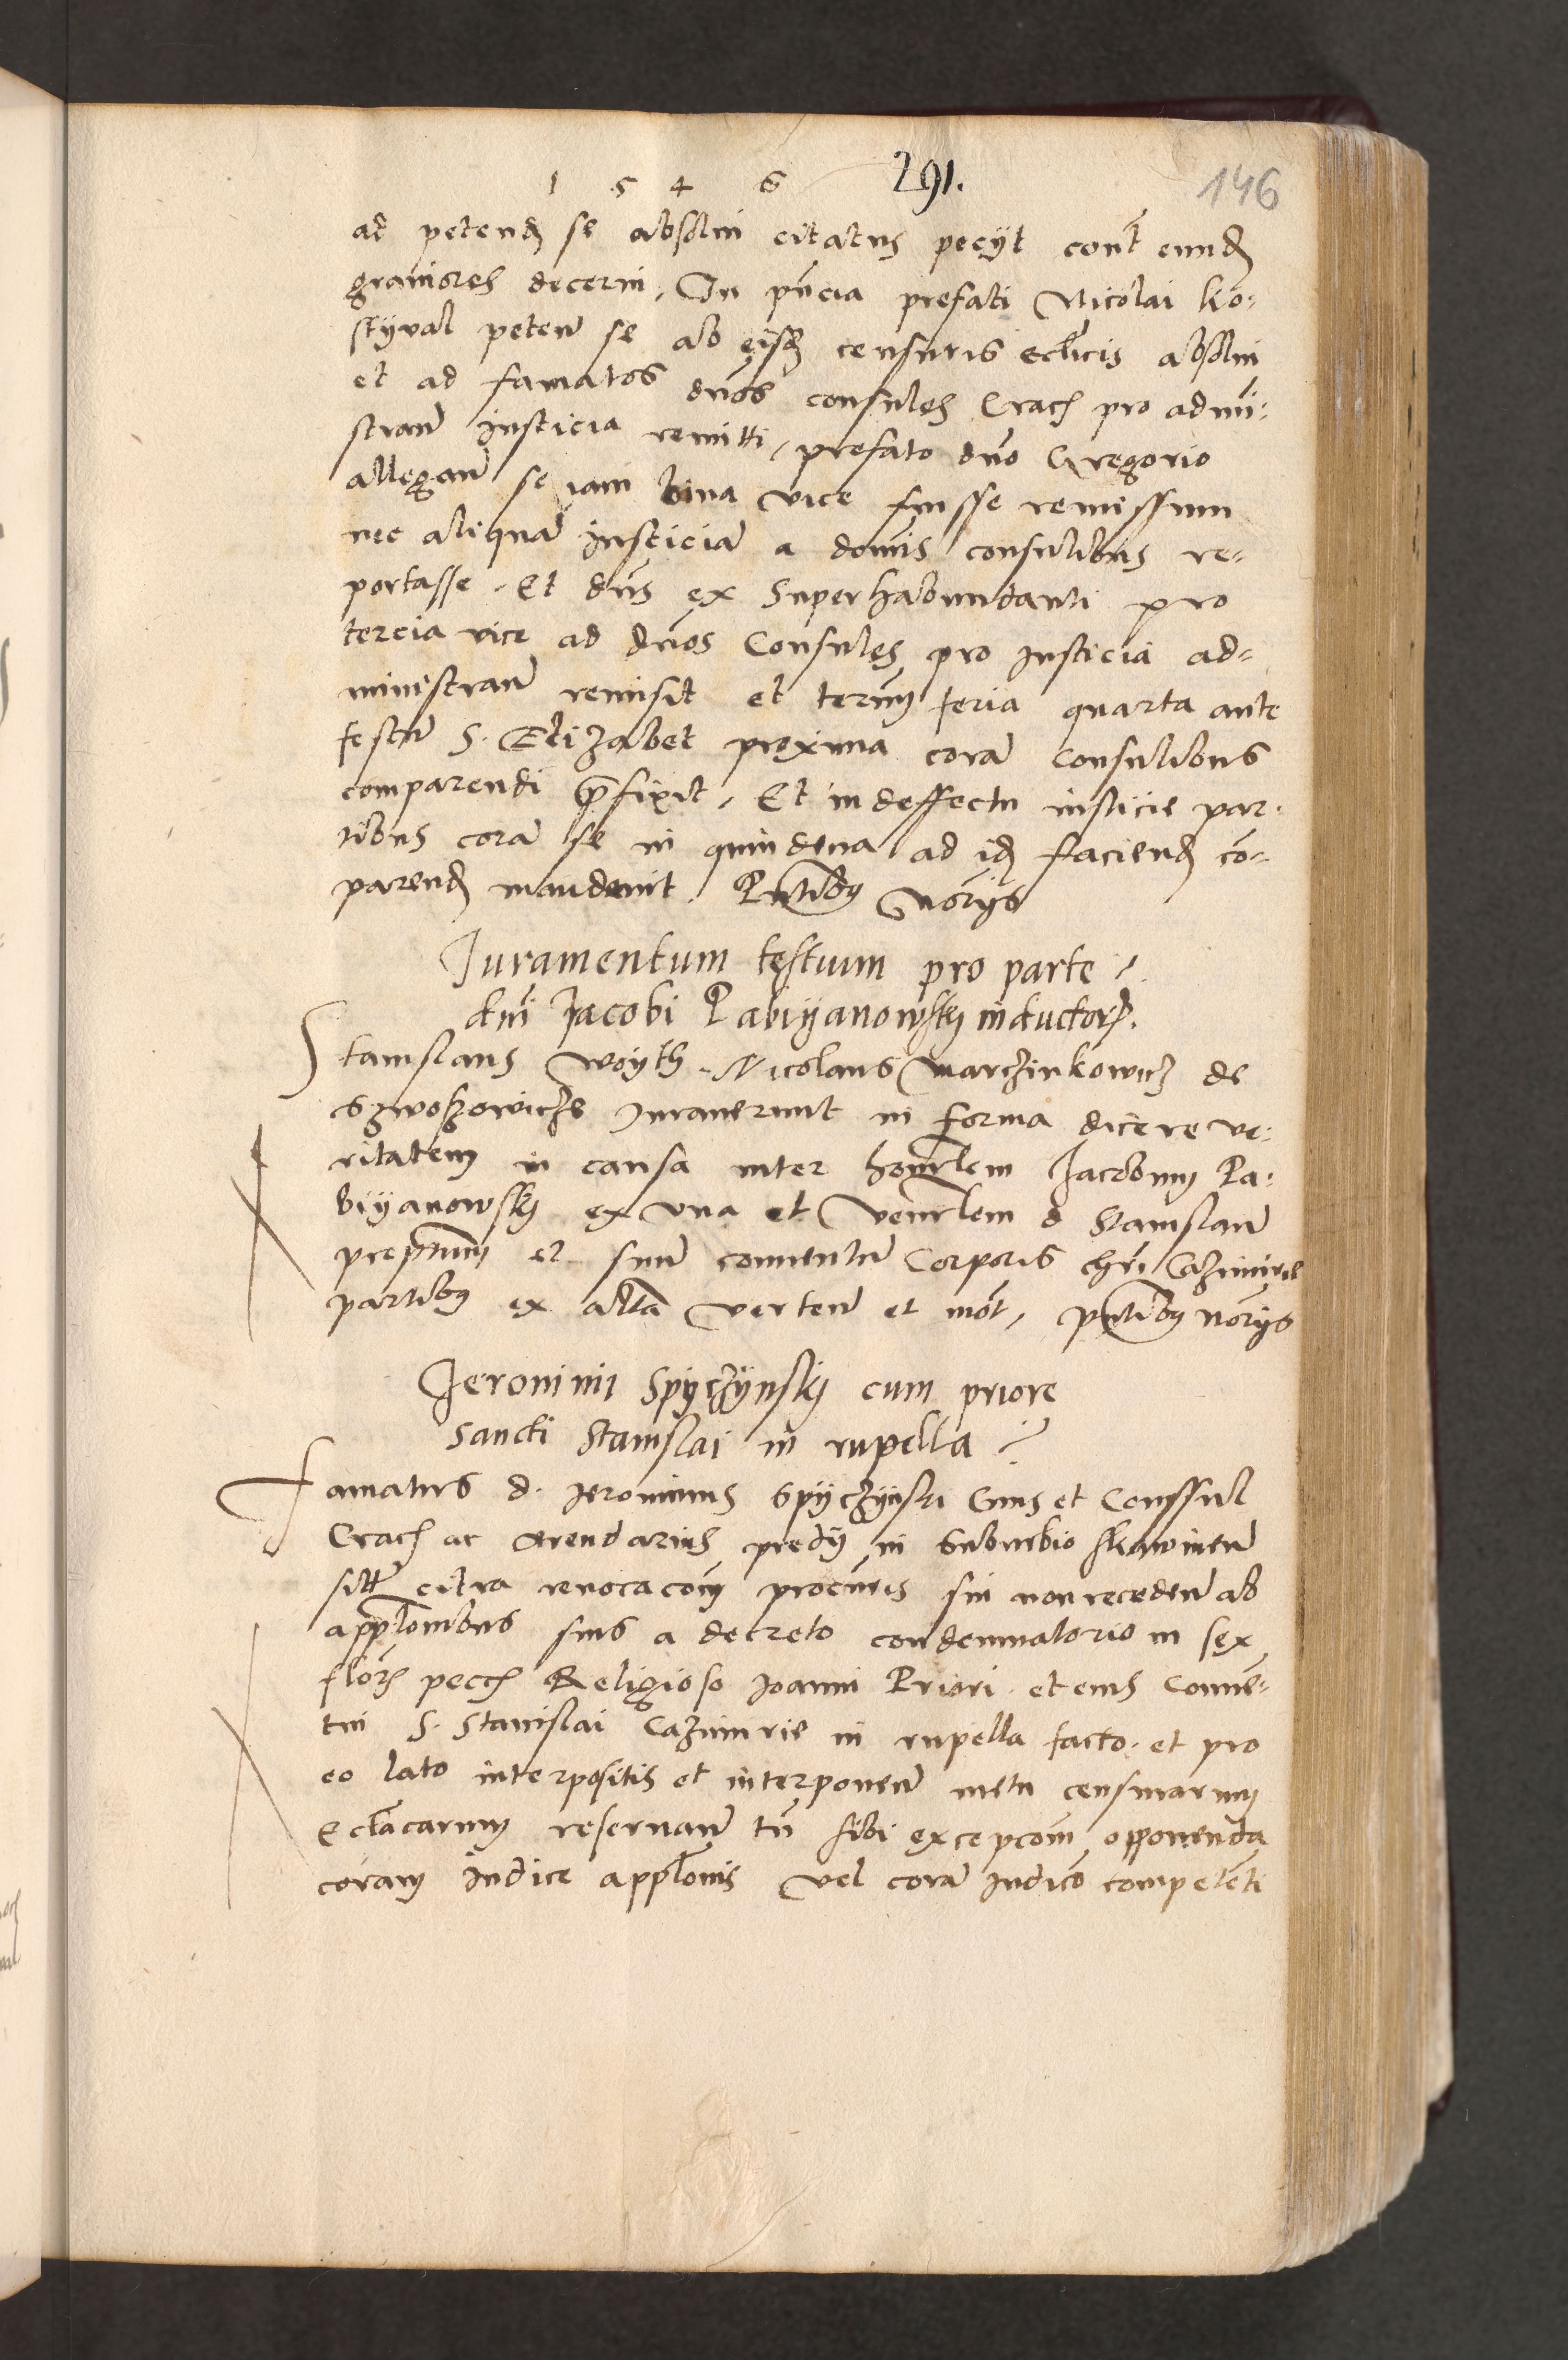 1 5 4 6 291. 146
ad petend se absolvi citatus pecijt cont eund
graviores decerni. In pncia prefati Nicolai Ko-
styval peten se ab eisd censuris ecclicis absolvi
et ad famatos dnos consules Crac pro admi-
stran iusticia remitti, prefato dno Gregorio
allegan se iam bina vice fuisse remissum
nec aliquam iusticia a domis consulibus re-
portasse. Et dns ex Superhabundanti pro
tercia vice ad dnos Consules pro iusticia ad-
ministran remisit et termin feria quarta ante
festu S. Elizabet proxima cora Consulibus
comparendi prefixit. Et in deffectu iusticie par-
tibus cora se in quindena ad id faciend co-
parend mandavit. Pntibus Noriis
Juramentum testium pro parte
dni Jacobi Pabiyanowsky inductor.
Stanislaus Woyth. Nicolaus Marczinkowicz de
Szwoszowicze Juraverunt in forma dicere ve-
ritatem in causa inter honorlem Jacobum Pa-
biyanowsky ex una et Venerlem d Stanislau
prepitum et suum conventu Corporis chri Cazimirie
partibus ex altra verten et mot, pntibus noriis
Jeronimi Spyczynsky cum priore
sancti Stanislai in rupella
Famatus d. Jeronimus Spyczynski Civis et Conssul
Crac ac Arendarius predii in Suburbio Skawinen
sitt citra revocacom procuris sui non receden ab
applonibus suis a decreto condemnatorio in sex
floris pecc Religioso Joanni Priori et eius Conve-
tui S. Stanislai Cazimirie in rupella facto. et pro
eo lato interpositis et interponen metu censurarum
Ecclacarum reservan tn sibi excepcom opponenda
coram Iudice applonis vel cora Iudico competeti